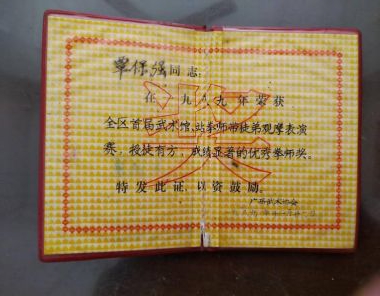 覃保强同志:
在一九八九年荣获
全区首届武术馆、站拳师带徒弟观摩表演
赛,授技有方,成绩显著的优秀拳师奖。
特发此证,以资鼓励。
广西武术协会
一九八九年十一月十二日
奖